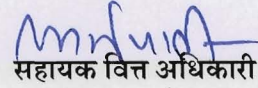 सहायक वित्त अधिकारी